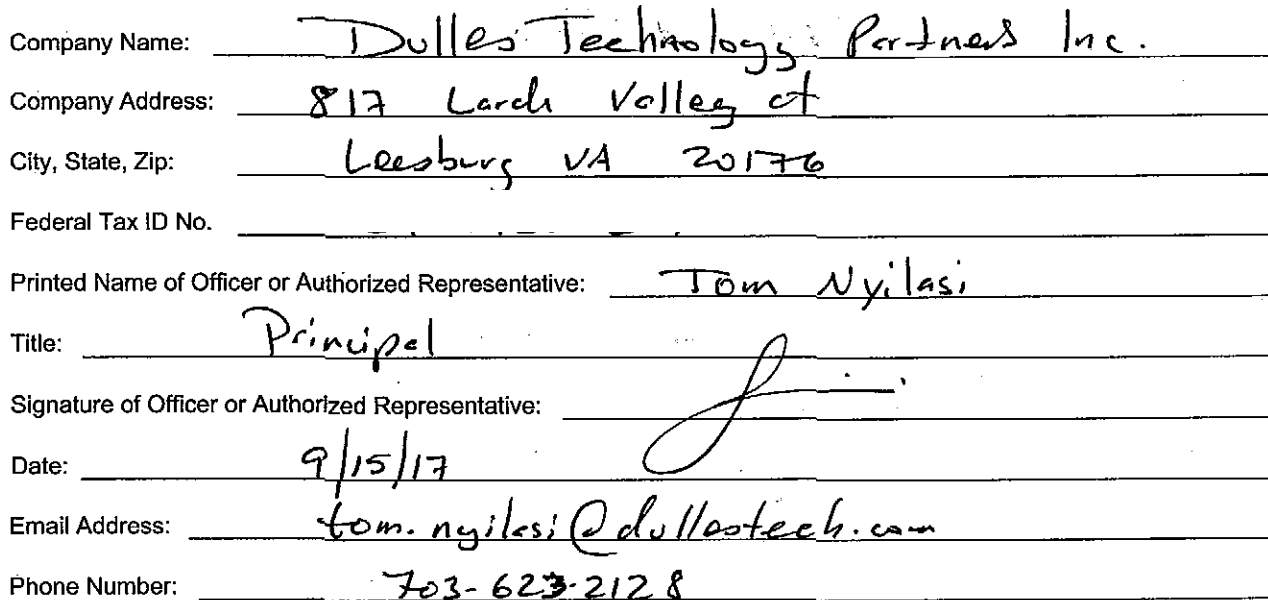 Company Name: Dulles Technology Partners Inc.
Company Address: 817 Larch Valley ct
City, State, Zip: Leesburg VA 20176
Federal Tax ID No.
Printed Name of Officer or Authorized Representative: Tom Nyilasi
Title: Principal
Signature of Officer or Authorized Representative:
Date: 9/15/17
Email Address: tom.nyilasi@dullestech.com
Phone Number: 703-623-2128